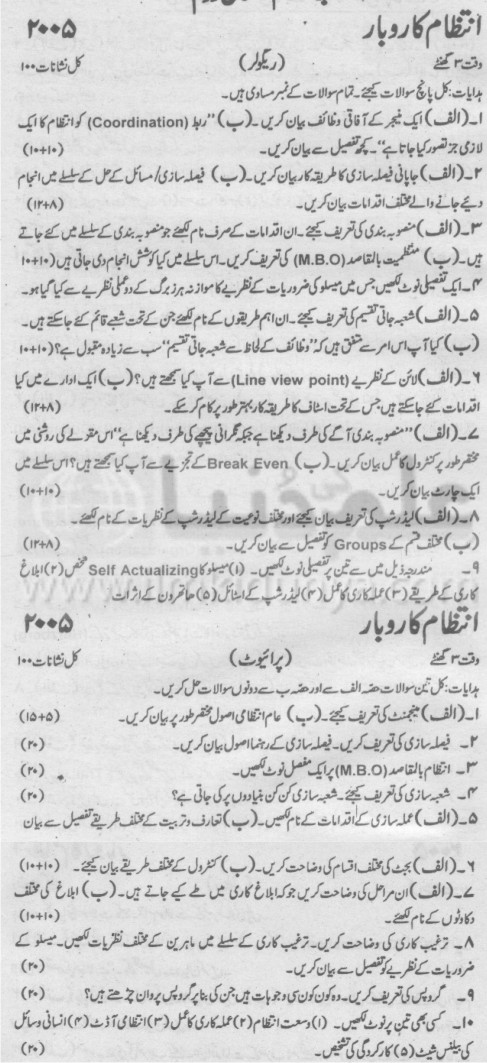 انتظام کاروبار ۲۰۰۵
وقت ۳ گھنٹے (ریگولر) کل نشانات ۱۰۰
ہدایات: کل پانچ سوالات کیجئے۔ تمام سوالات کے نمبر مساوی ہیں۔
۱۔ (الف) ایک منیجر کے آفاقی وظائف بیان کریں۔ (ب) "ربط (Coordination) کو انتظام کا ایک
لازمی جز تصور کیا جاتا ہے"۔ کچھ تفصیل سے بیان کریں۔ (۱۰+۱۰)
۲۔ (الف) جاپانی فیصلہ سازی کا طریقہ کار بیان کریں۔ (ب) فیصلہ سازی/مسائل کے حل کے سلسلے میں انجام
دیئے جانے والے مختلف اقدامات بیان کریں۔ (۱۲+۸)
۳۔ (الف) منصوبہ بندی کی تعریف کیجئے۔ ان اقدامات کے صرف نام لکھئے جو منصوبہ بندی کے سلسلے میں کئے جاتے
ہیں۔ (ب) منتظمیت بالمقاصد (M.B.O) کی تعریف کریں۔ اس سلسلے میں کیا کوشش انجام دی جاتی ہیں (۱۰+۱۰)
۴۔ ایک تفصیلی نوٹ لکھیں جس میں میسلو کی ضروریات کے نظریے کا موازنہ ہرزبرگ کے دو عملی نظریے سے کیا گیا ہو۔
۵۔ (الف) شعبہ جاتی تقسیم کی تعریف کیجئے۔ ان اہم طریقوں کے نام لکھئے جن کے تحت شعبے قائم کئے جاسکتے ہیں۔
(ب) کیا آپ اس امر سے متفق ہیں کہ "وظائف کے لحاظ سے شعبہ جاتی تقسیم" سب سے زیادہ مقبول ہے؟ (۱۰+۱۰)
۶۔ (الف) لائن کے نظریے (Line view point) سے آپ کیا سمجھتے ہیں؟ (ب) ایک ادارے میں کیا
اقدامات کئے جاسکتے ہیں جس کے تحت اسٹاف کا طریقہ کار بہتر طور پر کام کرسکے۔ (۱۲+۸)
۷۔ (الف) "منصوبہ بندی آگے کی طرف دیکھنا ہے جبکہ نگرانی پیچھے کی طرف دیکھنا ہے" اس مقولے کی روشنی میں
مختصر طور پر کنٹرول کا عمل بیان کریں۔ (ب) Break Even کے تجزیے سے آپ کیا سمجھتے ہیں؟ اس سلسلے میں
ایک چارٹ بیان کریں۔ (۱۰+۱۰)
۸۔ (الف) لیڈرشپ کی تعریف بیان کیجئے اور مختلف نوعیت کے لیڈرشپ کے نظریات کے نام لکھئے۔
(ب) مختلف قسم کے Groups کو تفصیل سے بیان کریں۔ (۱۲+۸)
۹۔ مندرجہ ذیل میں سے تین پر تفصیلی نوٹ لکھیں۔ (۱) میسلو کا Self Actualizing شخص (۲) ابلاغ
کاری کے طریقے (۳) عملہ کاری کا عمل (۴) لیڈرشپ کے اسٹائل (۵) ہاتھرون کے اثرات
انتظام کاروبار ۲۰۰۵
وقت ۳ گھنٹے (پرائیوٹ) کل نشانات ۱۰۰
ہدایات: کل تین سوالات حصہ الف سے اور حصہ ب سے دو نوں سوالات حل کریں۔
۱۔ (الف) منیجمنٹ کی تعریف کیجئے۔ (ب) عام انتظامی اصول مختصر طور پر بیان کریں۔ (۱۵+۵)
۲۔ فیصلہ سازی کی تعریف کریں۔ فیصلہ سازی کے رہنما اصول بیان کریں۔ (۲۰)
۳۔ انتظام بالمقاصد (M.B.O) پر ایک مفصل نوٹ لکھیں۔ (۲۰)
۴۔ شعبہ سازی کی تعریف کیجئے۔ شعبہ سازی کن کن بنیادوں پر کی جاتی ہے؟ (۲۰)
۵۔ (الف) عملہ سازی کے اقدامات کے نام لکھیں۔ (ب) تعارف و تربیت کے مختلف طریقے تفصیل سے بیان
۶۔ (الف) بجٹ کی مختلف اقسام کی وضاحت کریں۔ (ب) کنٹرول کے مختلف طریقے بیان کیجئے۔ (۱۰+۱۰)
۷۔ (الف) ان مراحل کی وضاحت کریں جو کہ ابلاغ کاری میں طے کیے جاتے ہیں۔ (ب) ابلاغ کی مختلف
رکاوٹوں کے نام لکھئے۔ (۱۰+۱۰)
۸۔ ترغیب کاری کی وضاحت کریں۔ ترغیب کاری کے سلسلے میں ماہرین کے مختلف نظریات لکھیں۔ میسلو کے
ضروریات کے نظریے کو تفصیل سے بیان کریں۔ (۲۰)
۹۔ گروپس کی تعریف کریں۔ وہ کون کون سی وجوہات ہیں جن کی بنا پر گروپس پروان چڑھتے ہیں؟ (۲۰)
۱۰۔ کسی بھی تین پر نوٹ لکھیں۔ (۱) وسعت انتظام (۲) عملہ کاری کا عمل (۳) انتظامی آڈٹ (۴) انسانی وسائل
کی بیلنس شیٹ (۵) کارکردگی کی تشخیص۔ (۲۰)